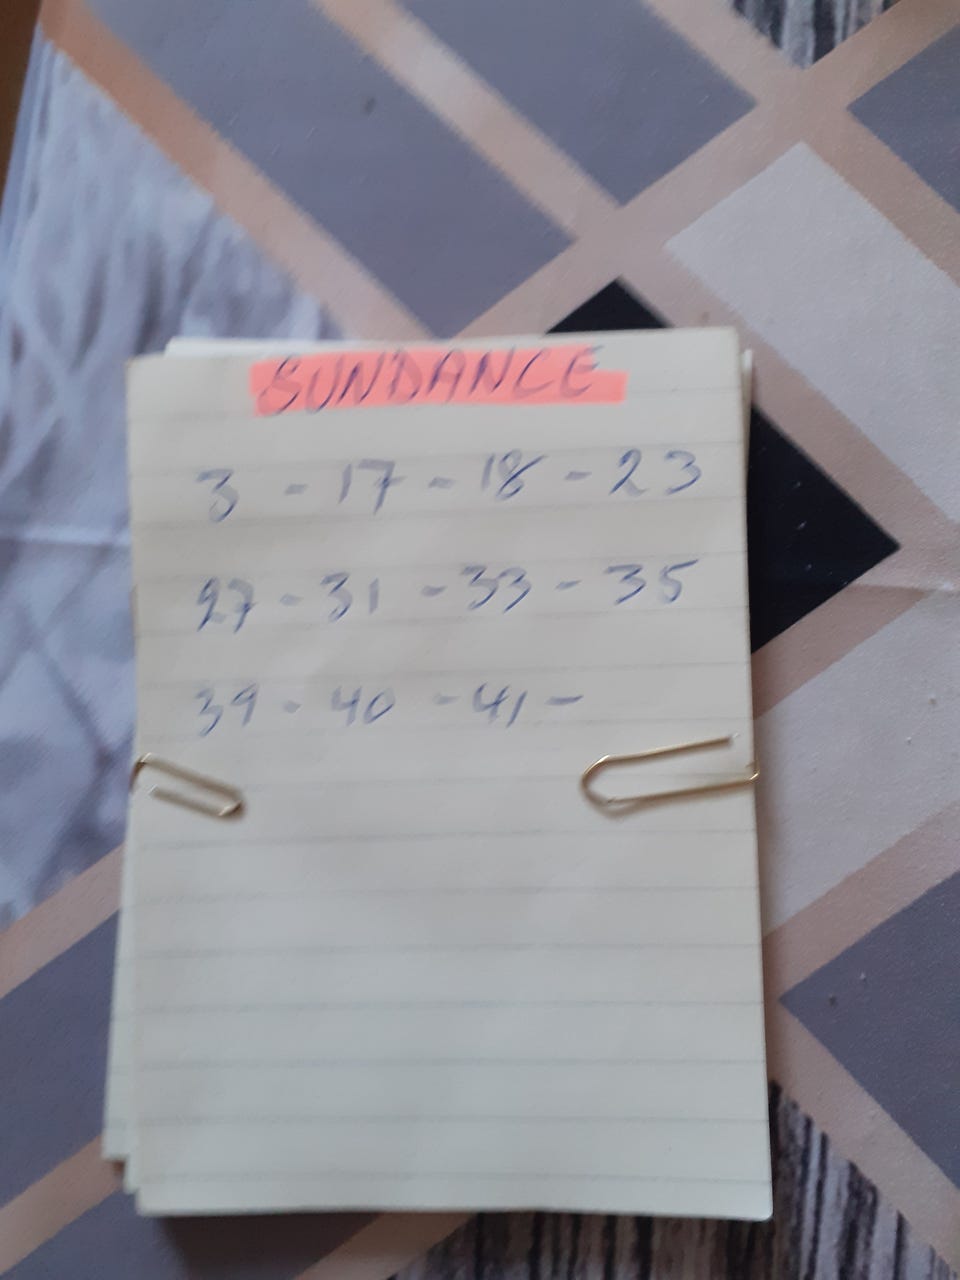 SUNDANCE
3 - 17 - 18 - 23
27 - 31 - 33 - 35
39 - 40 - 41 -